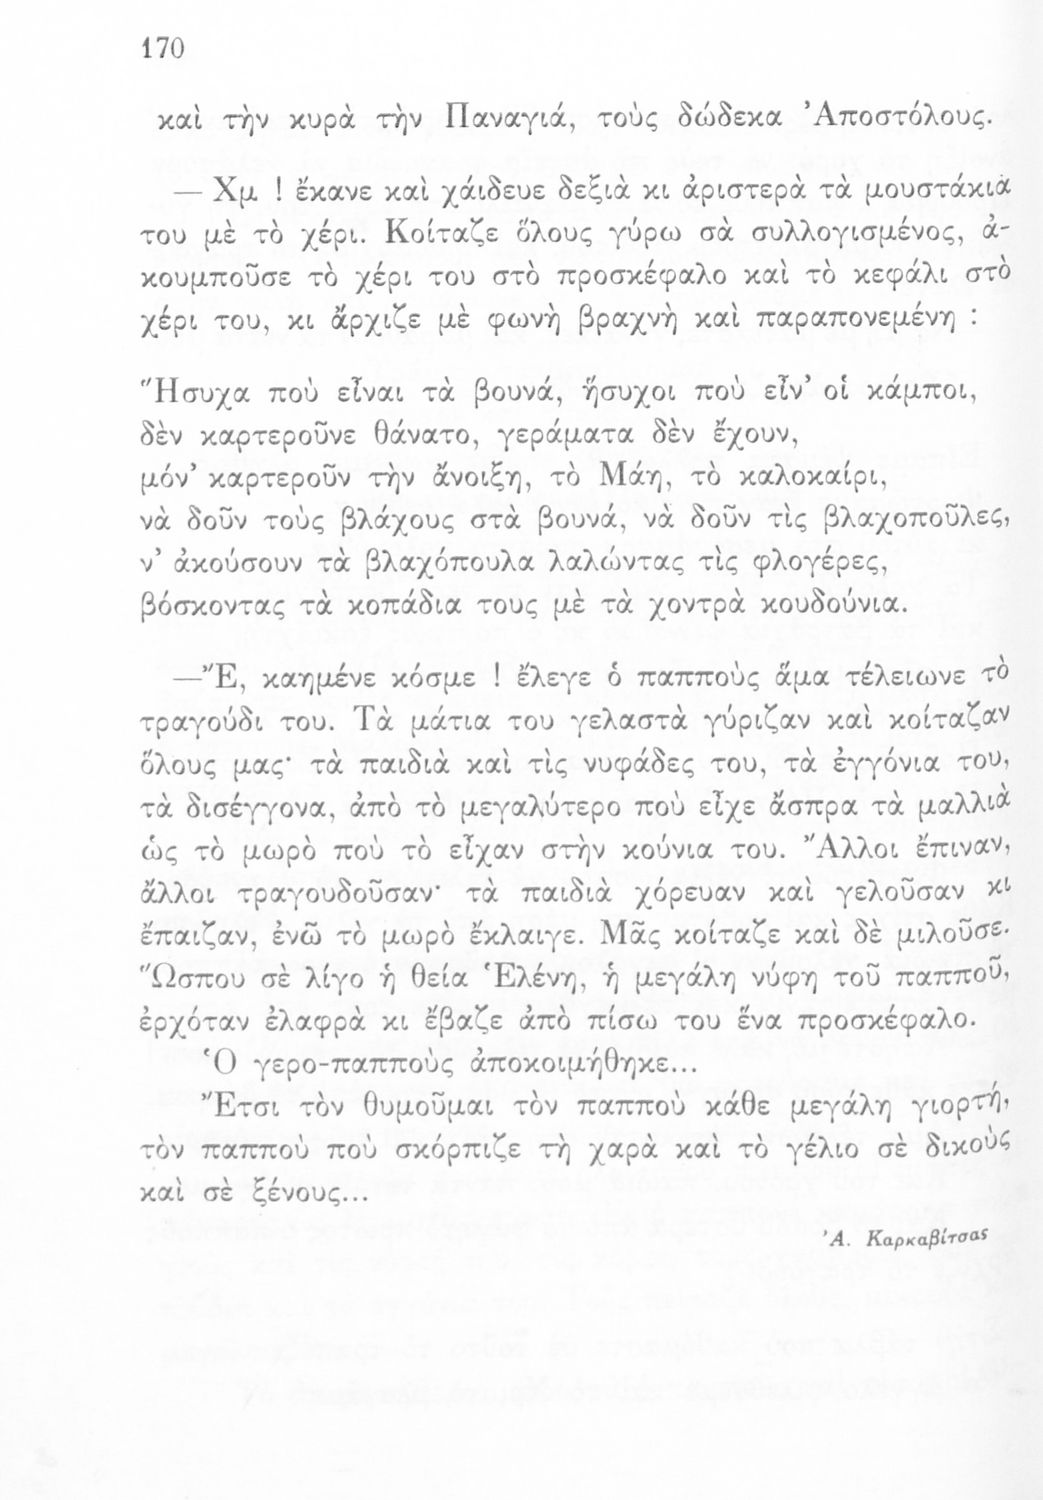 170
καὶ τὴν κυρὰ τὴν Παναγιά, τοὺς δώδεκα Ἀποστόλους.
— Χμ ! ἔκανε καὶ χάιδευε δεξιὰ κι ἀριστερὰ τὰ μουστάκια
του μὲ τὸ χέρι. Κοίταζε ὅλους γύρω σὰ συλλογισμένος, ἀ-
κουμποῦσε τὸ χέρι του στὸ προσκέφαλο καὶ τὸ κεφάλι στὸ
χέρι του, κι ἄρχιζε μὲ φωνὴ βραχνὴ καὶ παραπονεμένη :
Ἥσυχα ποὺ εἶναι τὰ βουνά, ἥσυχοι ποὺ εἶν’ οἱ κάμποι,
δὲν καρτεροῦνε θάνατο, γεράματα δὲν ἔχουν,
μόν’ καρτεροῦν τὴν ἄνοιξη, τὸ Μάη, τὸ καλοκαίρι,
νὰ δοῦν τοὺς βλάχους στὰ βουνά, νὰ δοῦν τὶς βλαχοποῦλες,
ν’ ἀκούσουν τὰ βλαχόπουλα λαλώντας τὶς φλογέρες,
βόσκοντας τὰ κοπάδια τους μὲ τὰ χοντρὰ κουδούνια.
—Ἔ, καημένε κόσμε ! ἔλεγε ὁ παπποὺς ἅμα τέλειωνε τὸ
τραγούδι του. Τὰ μάτια του γελαστὰ γύριζαν καὶ κοίταζαν
ὅλους μας· τὰ παιδιὰ καὶ τὶς νυφάδες του, τὰ ἐγγόνια του,
τὰ δισέγγονα, ἀπὸ τὸ μεγαλύτερο ποὺ εἶχε ἄσπρα τὰ μαλλιὰ
ὡς τὸ μωρὸ ποὺ τὸ εἶχαν στὴν κούνια του. Ἄλλοι ἔπιναν,
ἄλλοι τραγουδοῦσαν· τὰ παιδιὰ χόρευαν καὶ γελοῦσαν κι
ἔπαιζαν, ἐνῶ τὸ μωρὸ ἔκλαιγε. Μᾶς κοίταζε καὶ δὲ μιλοῦσε.
Ὥσπου σὲ λίγο ἡ θεία Ἑλένη, ἡ μεγάλη νύφη τοῦ παπποῦ,
ἐρχόταν ἐλαφρὰ κι ἔβαζε ἀπὸ πίσω του ἕνα προσκέφαλο.
Ὁ γερο-παπποὺς ἀποκοιμήθηκε...
Ἔτσι τὸν θυμοῦμαι τὸν παπποὺ κάθε μεγάλη γιορτή,
τὸν παπποὺ ποὺ σκόρπιζε τὴ χαρὰ καὶ τὸ γέλιο σὲ δικοὺς
καὶ σὲ ξένους...
Ἀ. Καρκαβίτσας